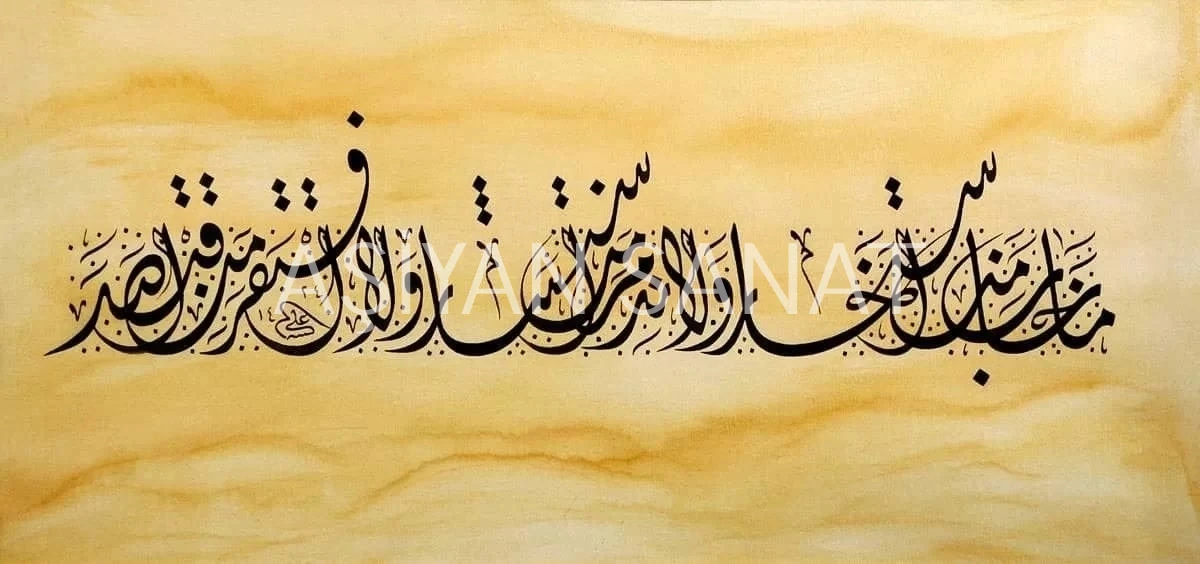 ما خاب من استخار ولا ندم من استشار ولا افتقر من اقتصد
ASIYAN SANAT